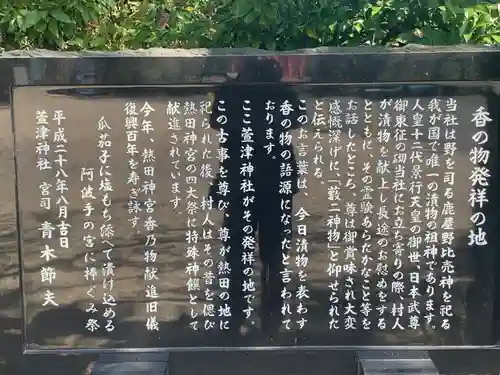 香の物発祥の地
当社は野を司る鹿屋野比売神を祀る
我が国で唯一の漬物の祖神であります。
人皇十二代景行天皇の御世、日本武尊
御東征の砌当社にお立ち寄りの際、村人
が漬物を献上し長途のお慰めをする
とともに、その霊験あらたかなこと等を
お話したところ、尊は御賞味され大変
感慨深げに、「藪二神物」と仰せられた
と伝えられる
このお言葉は、今日漬物を表わす
香の物の語源になったと言われて
おります。
ここ萱津神社がその発祥の地です。
この古事を尊び、尊が熱田の地に
祀られた後、村人はその昔を偲び
熱田神宮の四大祭に特殊神饌として
献進されています。
今年、熱田神宮香乃物献進旧儀
復興百年を寿ぎ詠す。
瓜茄子に塩もち添へて漬け込める
阿波手の宮に捧ぐみ祭
平成二十八年八月吉日
萱津神社 宮司 青木節夫